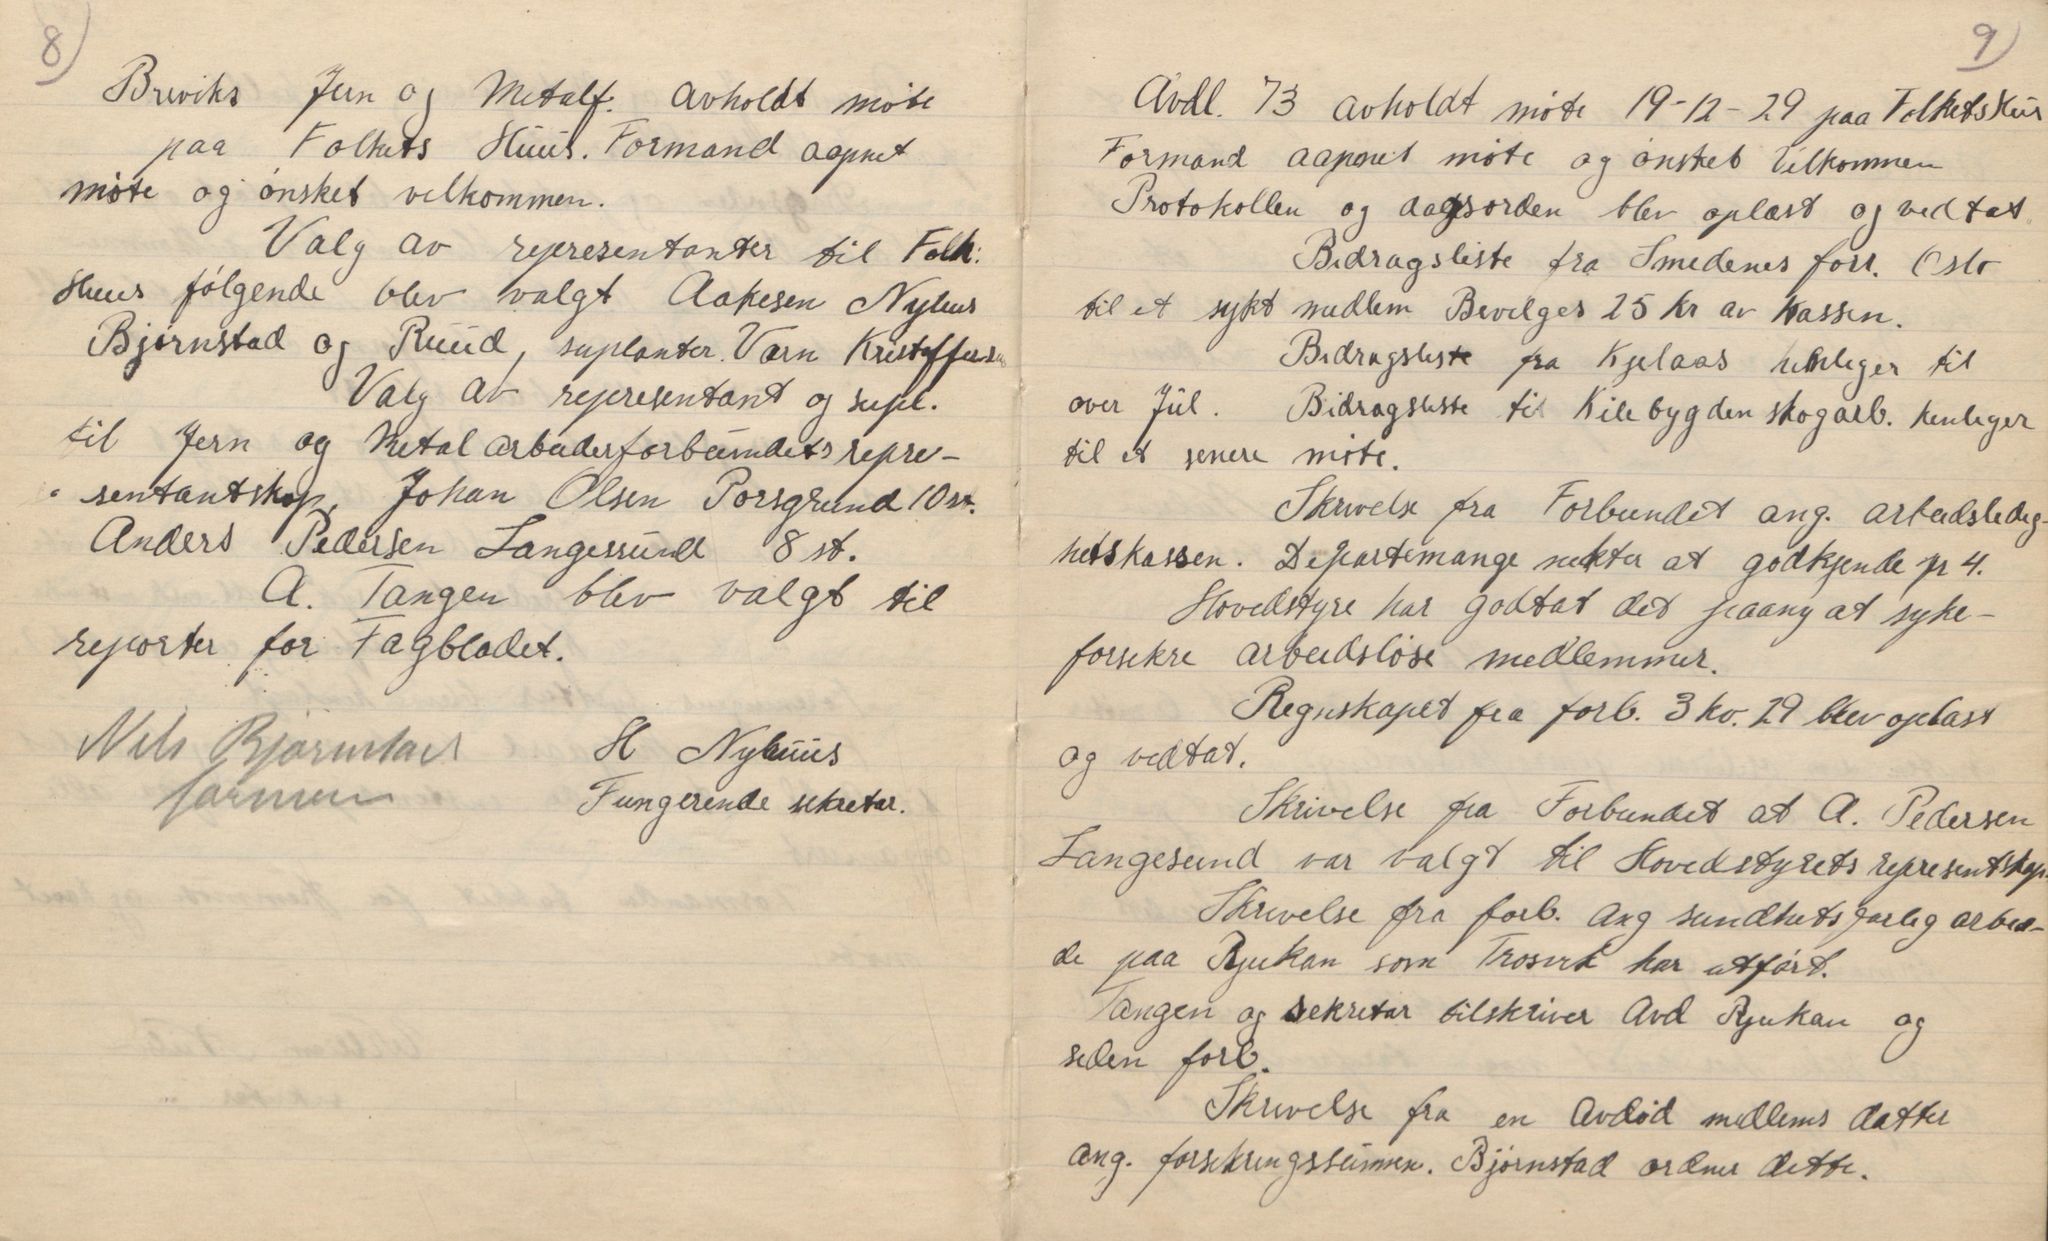 8)
Breviks Jern og Metalf. avholdt møte
paa Folkets Huus. Formand aapnet
møte og ønsket velkommen.
Valg av representanter til Folk.
Huus følgende blev valgt Aakesen Nyhus
Bjørnstad og Ruud, suplanter. Varn Kristoffersen
Valg av representant og supl.
til Jern og Metalarbeiderforbundets repre-
sentantskap, Johan Olsen Porsgrund 10 st.
Anders Pedersen Langesund 8 st.
A. Tangen blev valgt til
reporter for Fagbladet.
Nils Bjørnstad
formen
H Nyhuus
Fungerende sekretær.
9)
Avdl. 73 avholdt møte 19-12-29 paa Folkets Hus
Formand aapnet møte og ønsket Velkommen
Protokollen og dagsorden blev oplæst og vedtat
Bidragsliste fra Smedenes forr. Oslo
til et sykt medlem Bevilges 25 kr av kassen.
Bidragsliste fra Kjelaas henleger til
over Jul. Bidragsliste til Kilebygden skogarb. henleger
til et senere møte.
Skrivelse fra Forbundet ang. arbeidsledig-
hetskassen. Departemange nekter at godkjende pr 4.
Hovedstyre har godtat det paany at syke-
forsekre arbeidsløse medlemmer.
Regnskapet fra forb. 3 kv. 29 blev oplæst
og vedtat.
Skrivelse fra Forbundet at A. Pedersen
Langesund var valgt til Hovedstyrets representskap.
Skrivelse fra forb. ang sundhetsfarlig arbei-
de paa Rjukan som Trosvik har utført.
Tangen og sekretær tilskriver Avd Rjukan og
siden forb.
Skrivelse fra en avdød medlems datter
ang. forsikringssummen. Bjørnstad ordner dette.